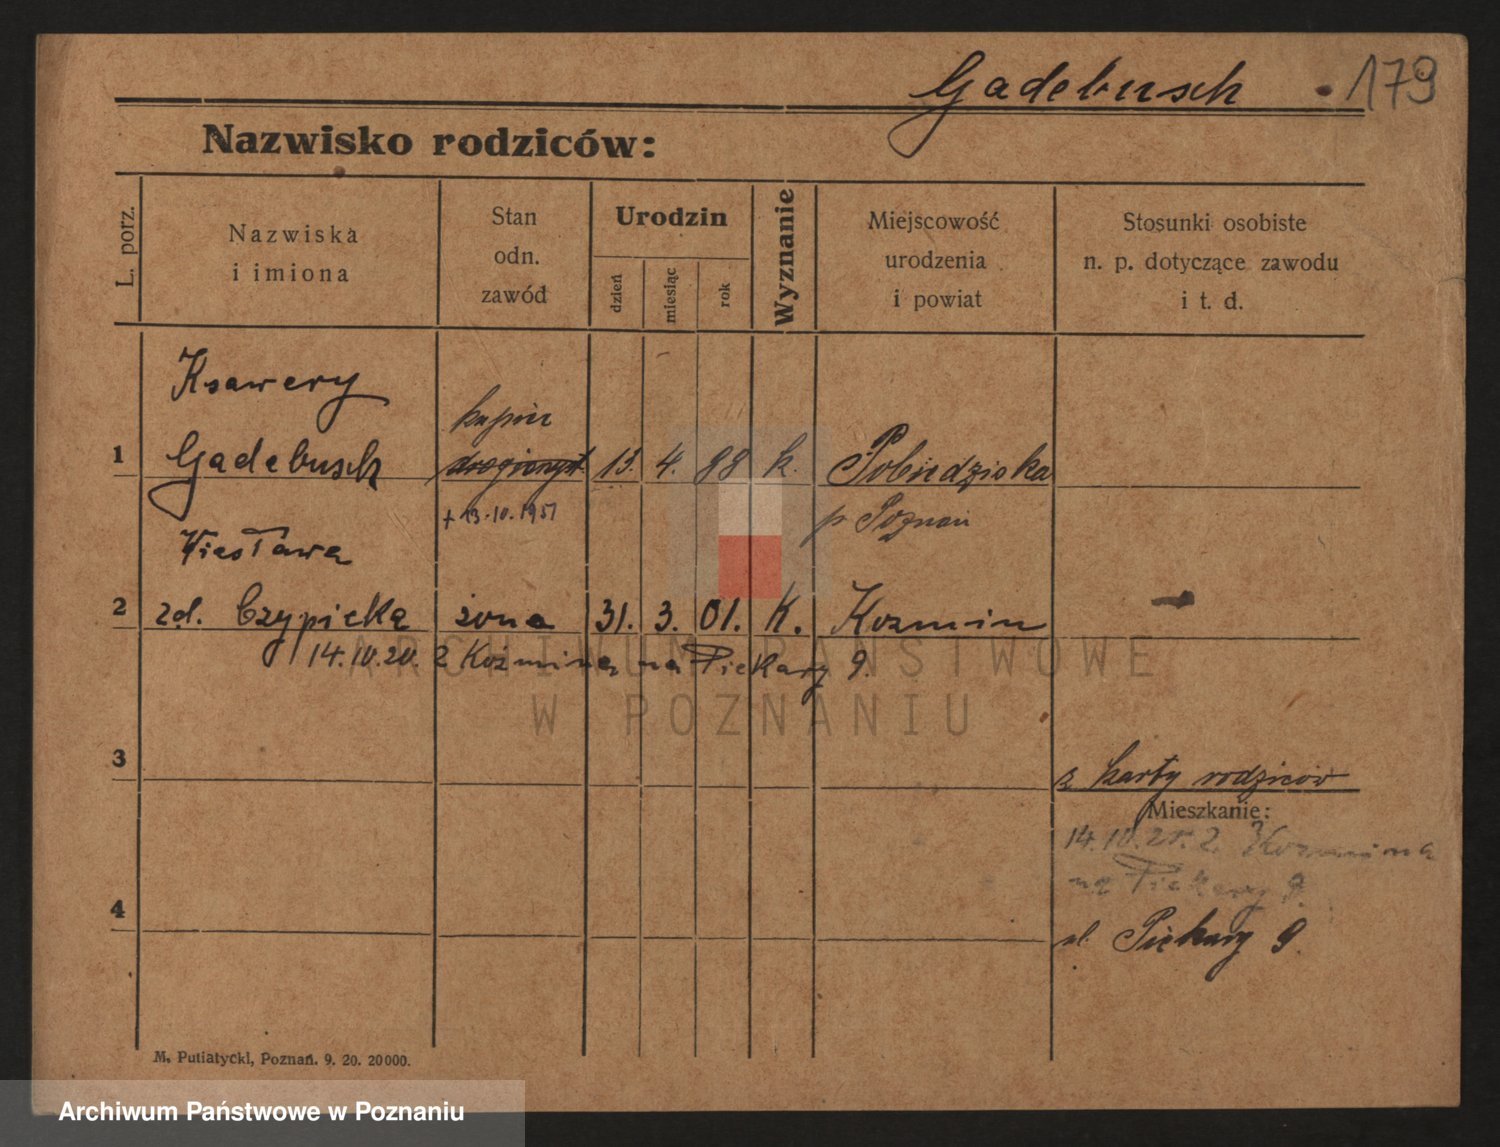 Gadebusch 179
Nazwisko rodziców:
L. porz.
Nazwiska
i imiona
Stan
odn.
zawód
Urodzin
dzień
miesiąc
rok
Wyznanie
Miejscowość
urodzenia
i powiat
Stosunki osobiste
n. p. dotyczące zawodu
i t. d.
Ksawery
kupiec
1 Gadebusch drogierzyst. 13. 4. 88 k. Pobiedziska
+ 13.10.1951 p Poznań
Wiesława
2 zd. Czypicka żona 31. 3. 01. K. Kozmin
14.10.20. z Koźmina na Piekary 9.
ARCHIWUM PAŃSTWOWE
W POZNANIU
3
z karty rodziców
Mieszkanie:
14.10.20. z Kozmina
na Piekary 9.
4
ul. Piekary 9
M. Putiatycki, Poznań. 9. 20. 20000.
Archiwum Państwowe w Poznaniu